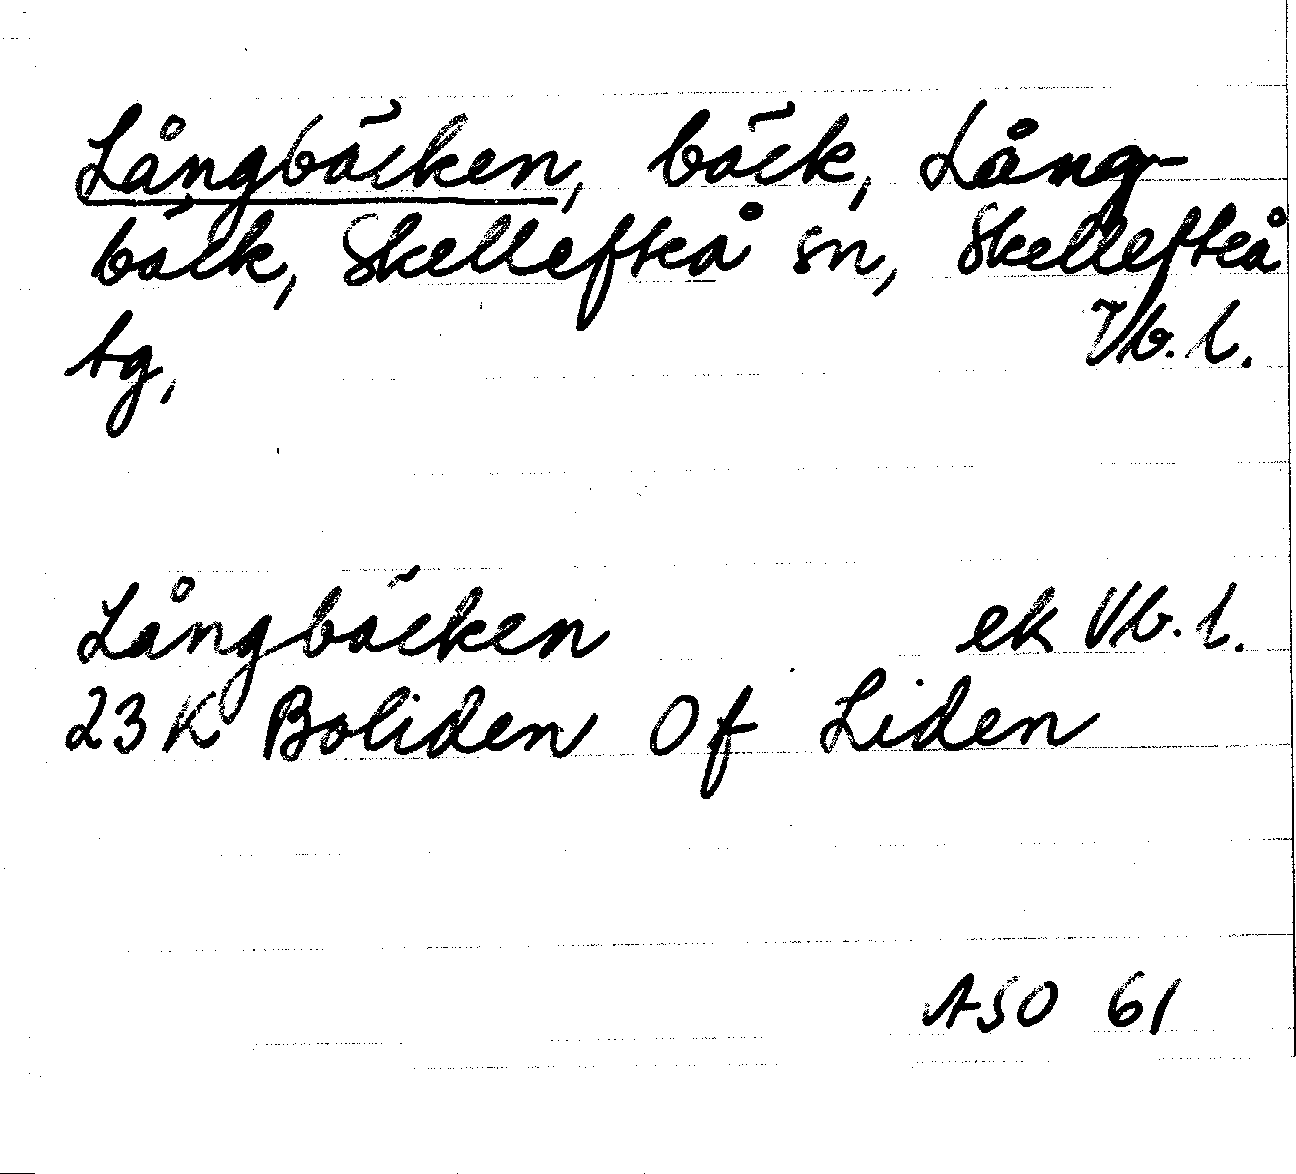 Långbäcken, bäck, Lång-
bäck, Skellefteå sn, Skellefteå
tg, Vb. l.
Långbäcken ek Vb. l.
23 K Boliden Of Liden
ASO 61